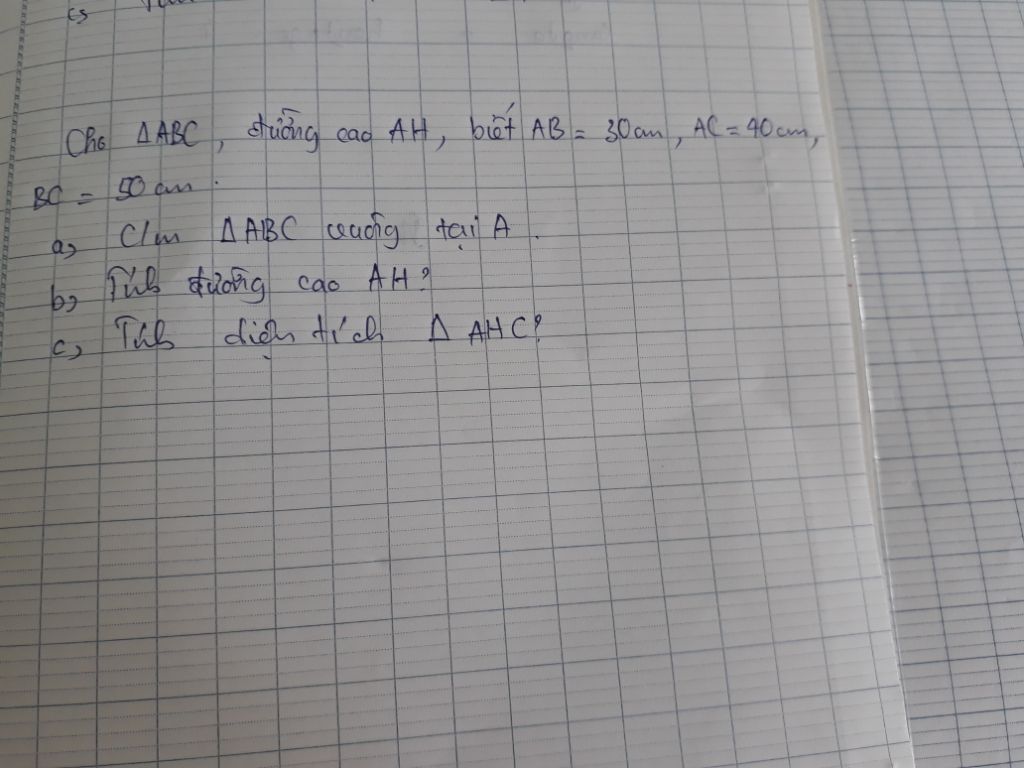 c,
Cho ΔABC, đường cao AH, biết AB = 30cm, AC = 40cm,
BC = 50 cm.
a, C/m ΔABC vuông tại A.
b, Tính đường cao AH?
c, Tính diện tích Δ AHC?